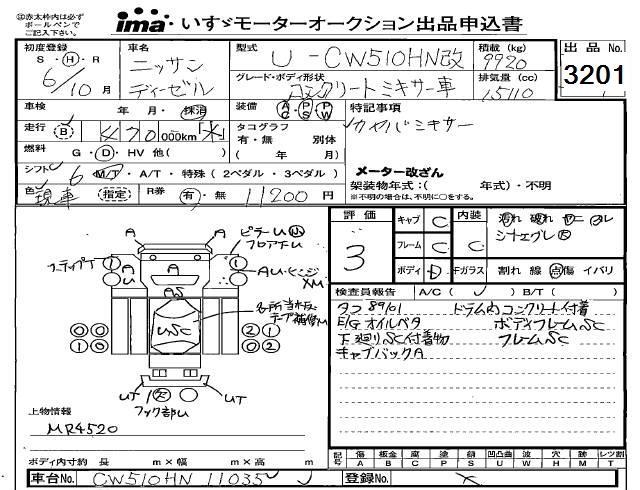 ㊟赤太枠内は必ず
ボールペンで
ご記入下さい。
ima いすゞモーターオークション出品申込書
初度登録 車名 型式 積載(kg) 出品No.
S・Ⓗ・R ニッサン U-CW510HN改 9920 3201
6/10月 ディーゼル グレード・ボディ形状 排気量(cc)
コンクリートミキサー車 15110
車検 年・月・抹消 装備 AC PS PW 特記事項
走行 Ⓑ 470 000km タコグラフ カヤバミキサー
有・無 別体
燃料 G・Ⓓ・HV 他( ) ( 年 月) メーター改ざん
シフト 6 M/T・A/T・特殊(2ペダル・3ペダル) 架装物年式:( 年式)・不明
色 現車 指定 R券 有・無 11200円 ※不明の場合は、不明に○をする。
評価 キャブ C 内装 C
3 フレーム C
ボディ D Fガラス 割れ 線 点傷 イバリ
検査員報告 A/C( ) B/T( )
タコ89/01 ドラム内コンクリート付着
E/G オイルベタ ボディフレームSC
下廻りSC付着物 フレームSC
キャブバックA
ピラーU小
フロア下U
ステップT
AU ヒンジ
XM
各所当れU
テープ補修M
A
A
A
AS
USC
UT
UT
フック部U
上物情報
MR4520
ボディ内寸約 長 m×幅 m×高 m
記号 傷A 板金B 腐C 塗P 錆S 凹凸曲U 波W 穴H 跡M レツ割T
車台No. CW510HN 11035 登録No.